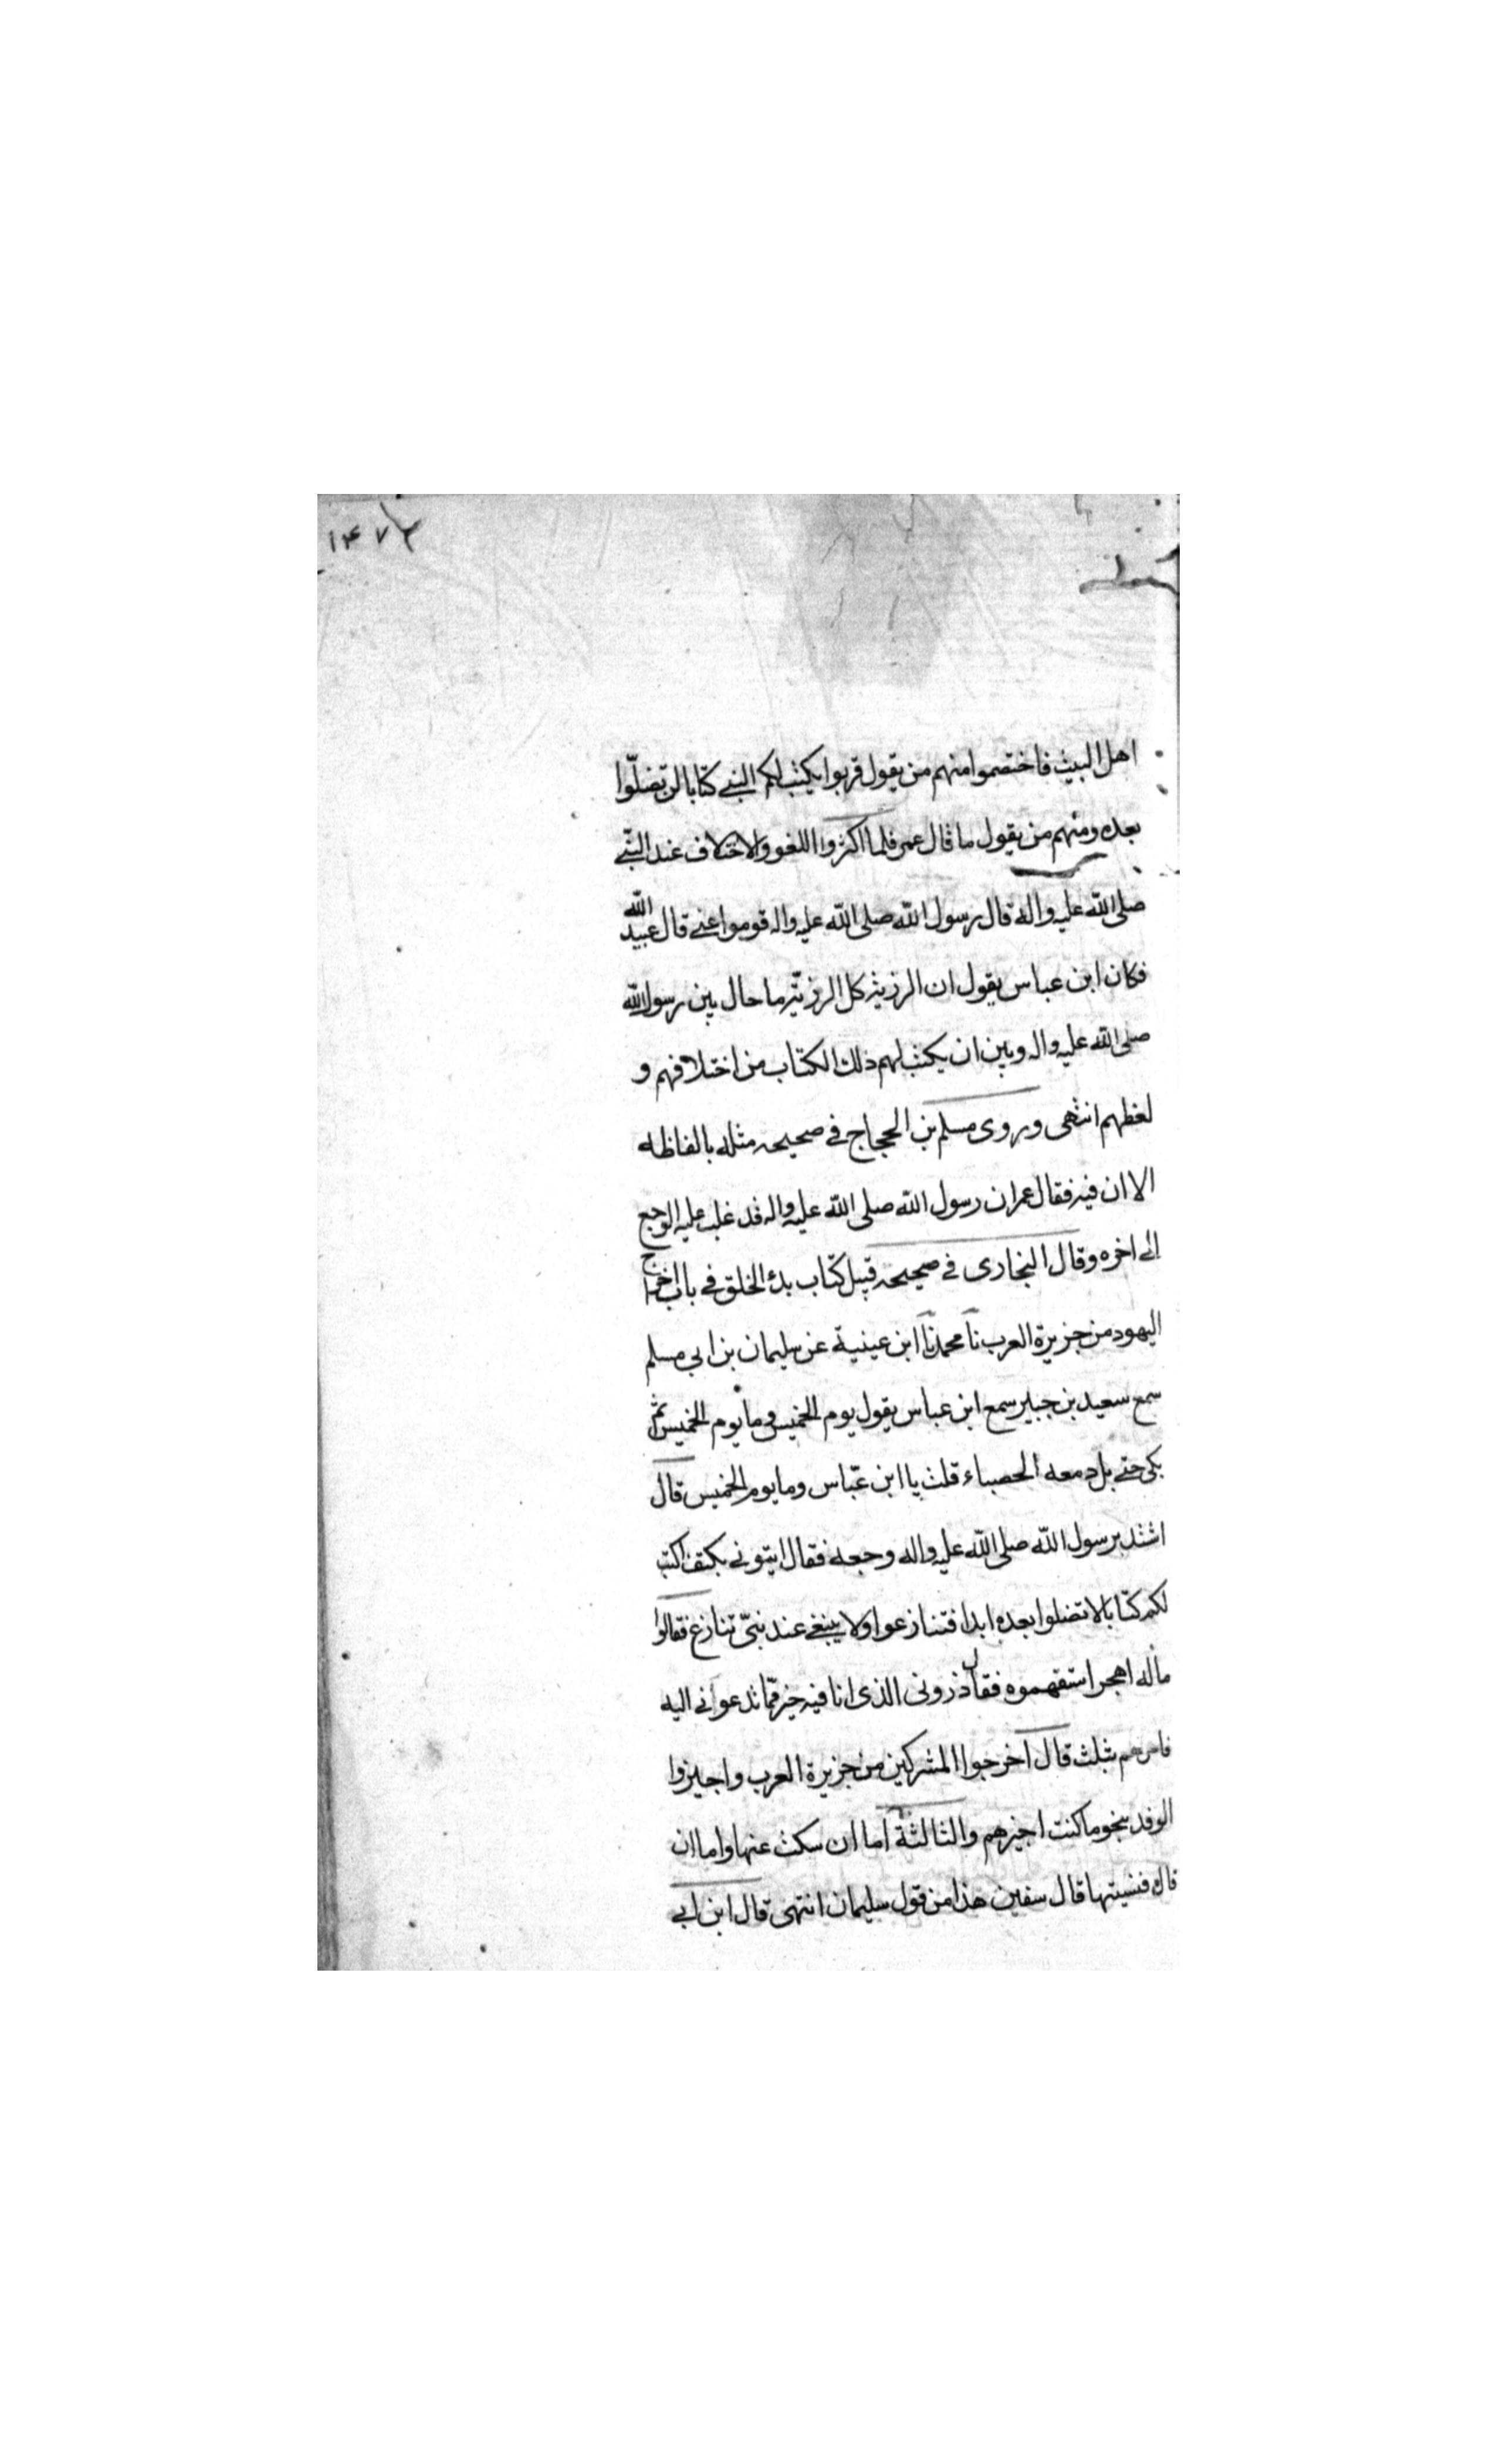 ۱۴۷
اهل البيت فاختصموا منهم من يقول قربوا يكتب لكم النبي كتابا لن تضلّوا
بعده ومنهم من يقول ما قال عمر فلما اكثروا اللغو والاختلاف عند النبّي
صلى الله عليه واله قال رسول الله صلى الله عليه واله قوموا عني قال عبيد الله
فكان ابن عباس يقول ان الرزيّة كل الرزيّة ما حال بين رسول الله
صلى الله عليه واله وبين ان يكتب لهم ذلك الكتاب من اختلافهم و
لغطهم انتهى وروى مسلم بن الحجاج في صحيحه مثله بالفاظه
الا ان فيه فقال عمر ان رسول الله صلى الله عليه واله قد غلب عليه الوجع
الى اخره وقال البخارى في صحيحه قبيل كتاب بدئ الخلق في باب اخراج
اليهود من جزيرة العرب نا محمد نا ابن عينية عن سليمان بن ابي مسلم
سمع سعيد بن جبير سمع ابن عباس يقول يوم الخميس وما يوم الخميس ثم
بكى حتى بل دمعه الحصباء قلت يا ابن عبّاس وما يوم الخميس قال
اشتد برسول الله صلى الله عليه واله وجعه فقال ايتوني بكتف اكتب
لكم كتابا لا تضلوا بعده ابدا فتنازعوا ولا ينبغي عند نبيّ تنازع فقالوا
ماله اهجر استفهموه فقال ذروني الذى انا فيه خير ممّا تدعوني اليه
فامرهم بثلث قال اخرجوا المشركين من جزيرة العرب واجيزوا
الوفد بنحو ما كنت اجيزهم والثالثة اما ان سكت عنها واما ان
قال فنسيتها قال سفين هذا من قول سليمان انتهى قال ابن ابي